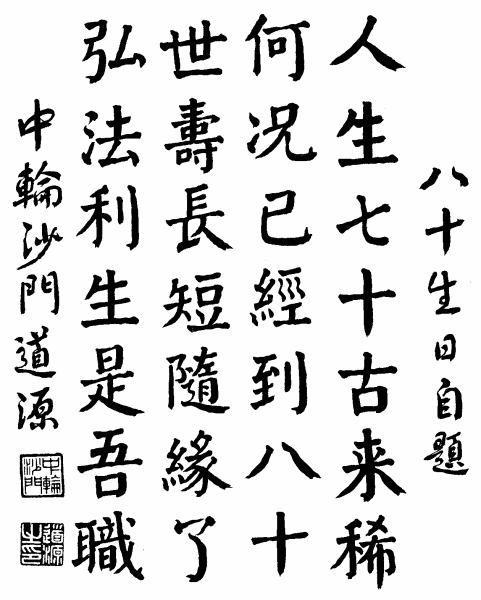 八十生日自題
人生七十古来稀
何况已經到八十
世壽長短隨緣了
弘法利生是吾職
中輪沙門道源
中輪沙門
道源之印